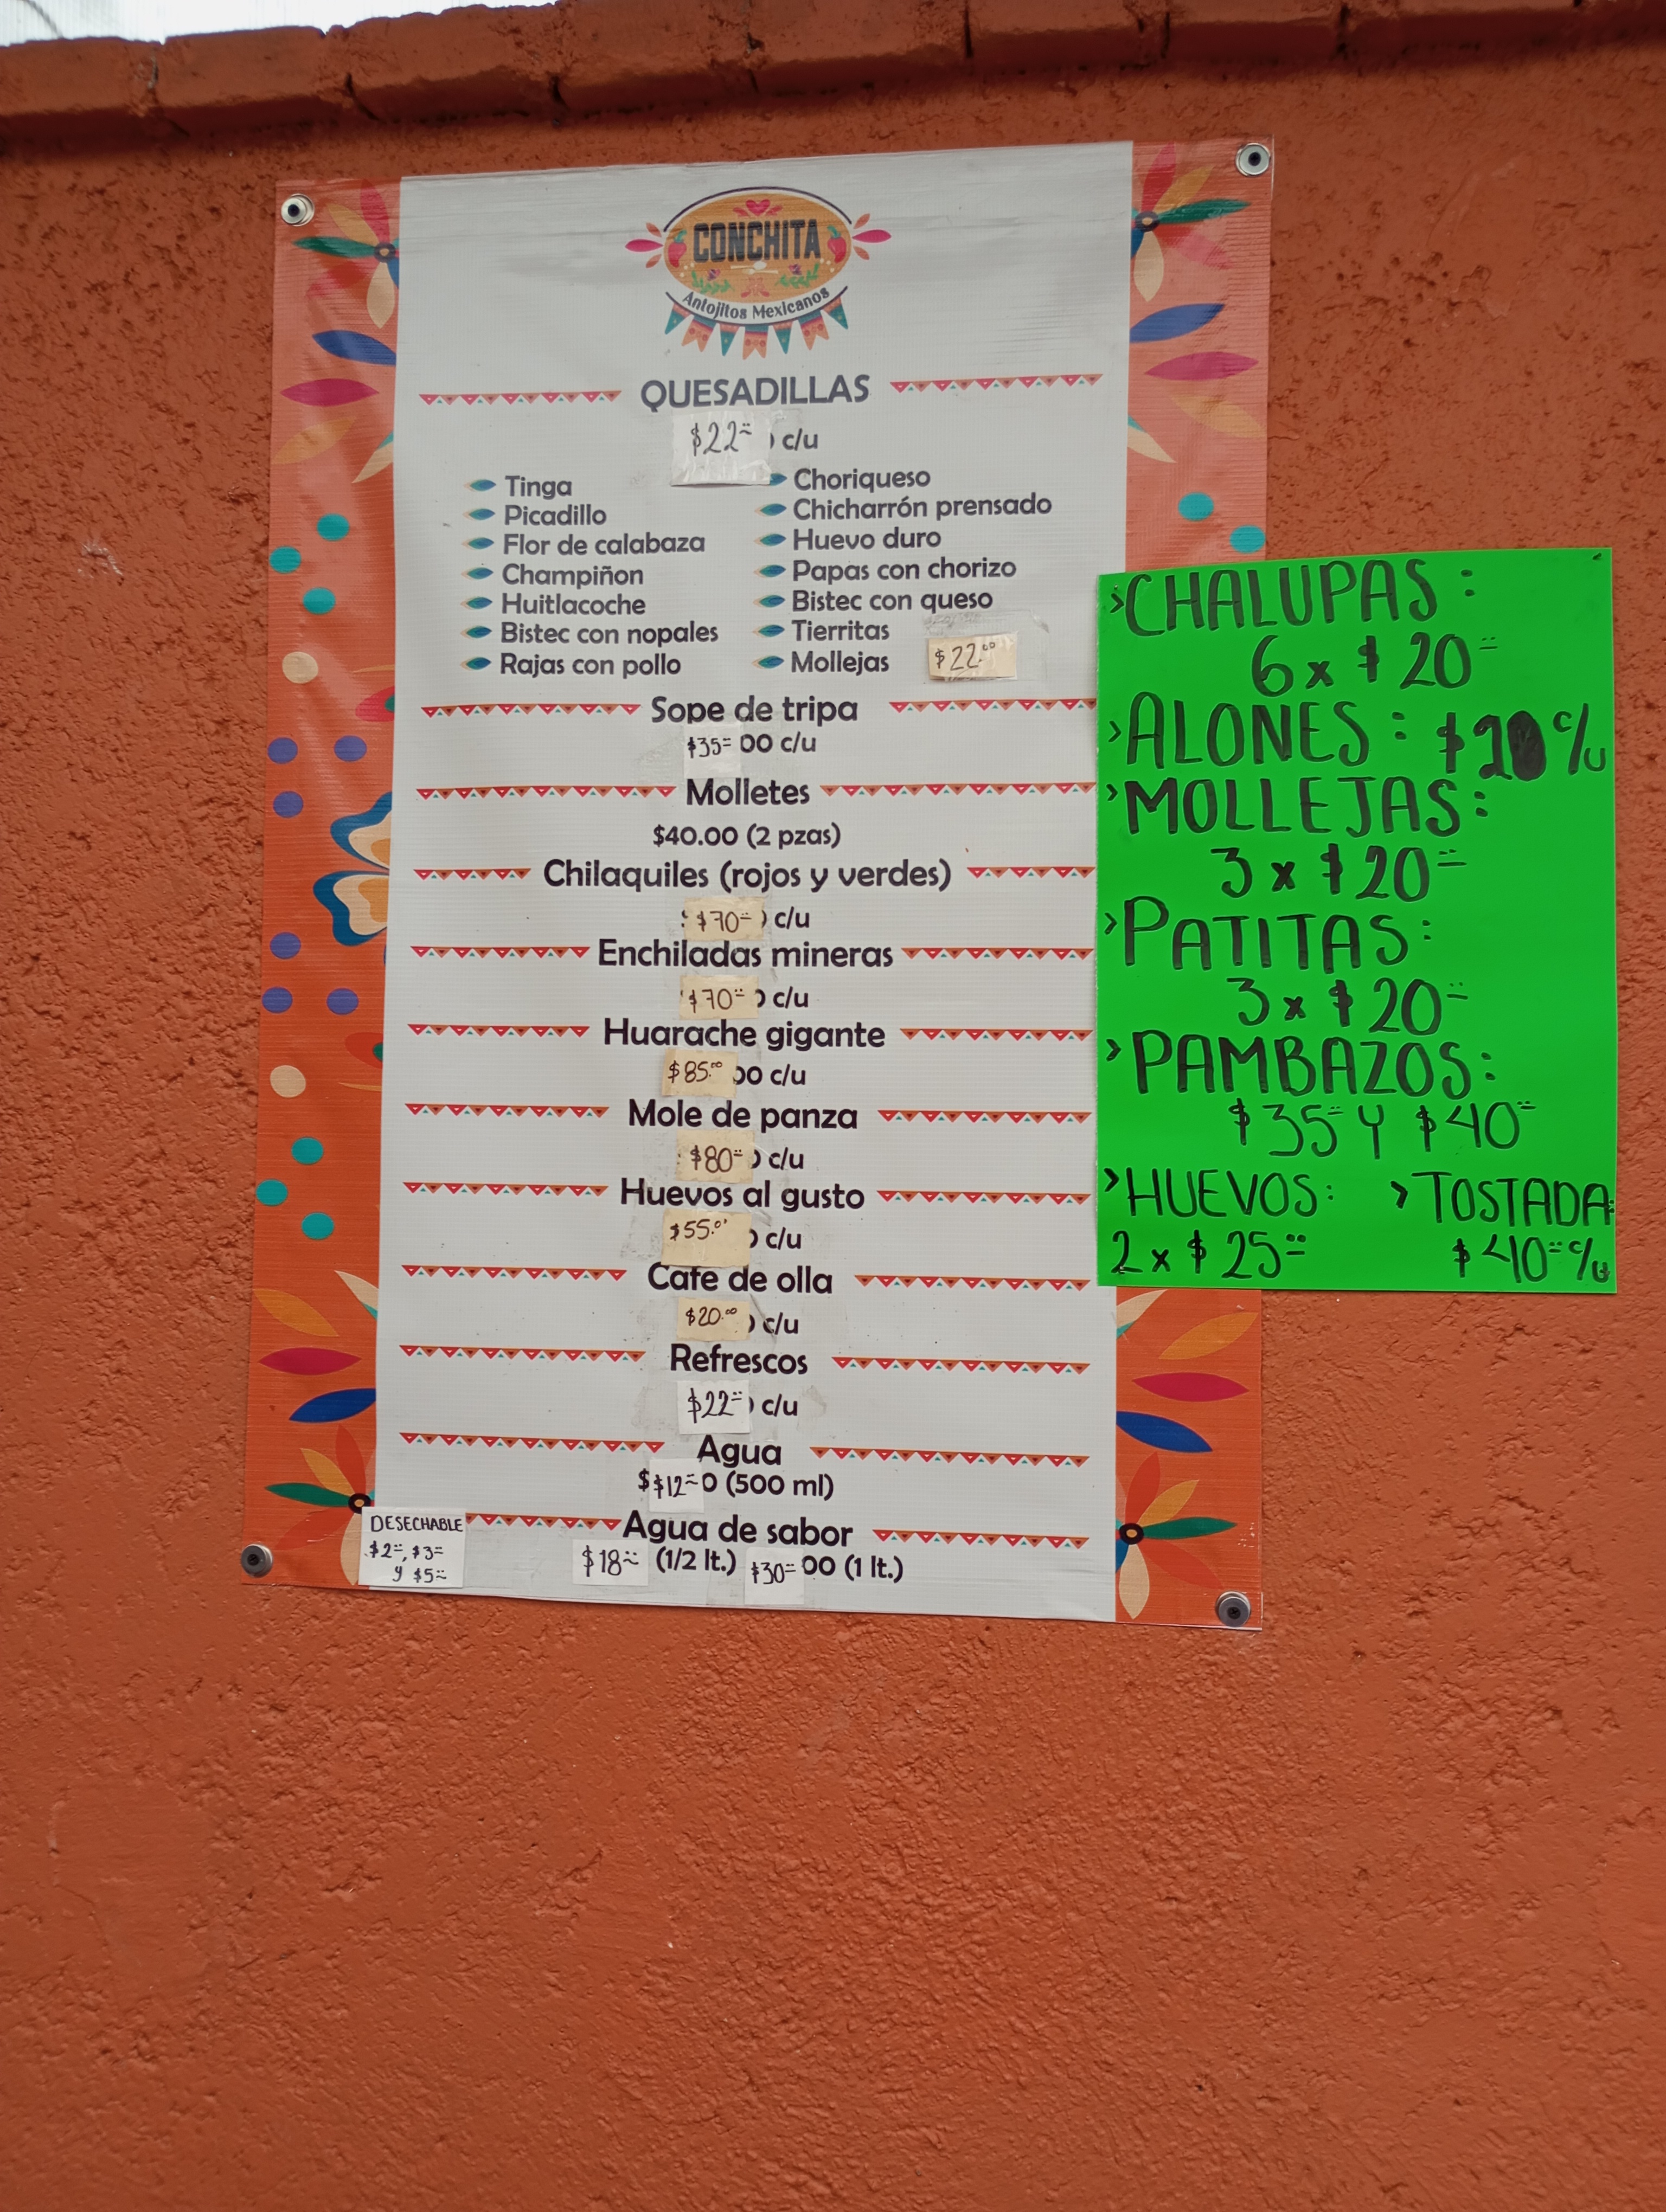 CONCHITA
Antojitos Mexicanos
QUESADILLAS
$22= c/u
Tinga
Picadillo
Flor de calabaza
Champiñon
Huitlacoche
Bistec con nopales
Rajas con pollo
Choriqueso
Chicharrón prensado
Huevo duro
Papas con chorizo
Bistec con queso
Tierritas
Mollejas $22.00
Sope de tripa
$35= 00 c/u
Molletes
$40.00 (2 pzas)
Chilaquiles (rojos y verdes)
$70= c/u
Enchiladas mineras
$70= c/u
Huarache gigante
$85.00 00 c/u
Mole de panza
$80= c/u
Huevos al gusto
$55.0 c/u
Cafe de olla
$20.00 c/u
Refrescos
$22= c/u
Agua
$ $12= 0 (500 ml)
Agua de sabor
$18= (1/2 lt.) $30= 00 (1 lt.)
DESECHABLE
$2=, $3=
y $5=
> CHALUPAS:
6 x $20=
> ALONES: $ c/u
> MOLLEJAS:
3 x $20=
> PATITAS:
3 x $20=
> PAMBAZOS:
$35= Y $40=
> HUEVOS: > TOSTADA:
2 x $25= $40= c/u